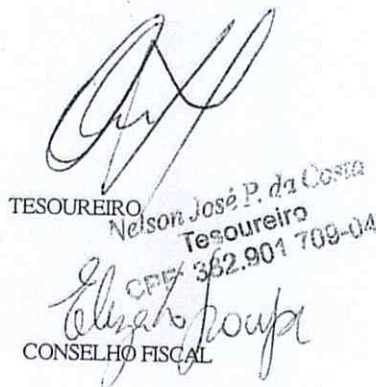 TESOUREIRO
Nelson José P. da Costa
Tesoureiro
CPF: 362.901 709-04
CONSELHO FISCAL